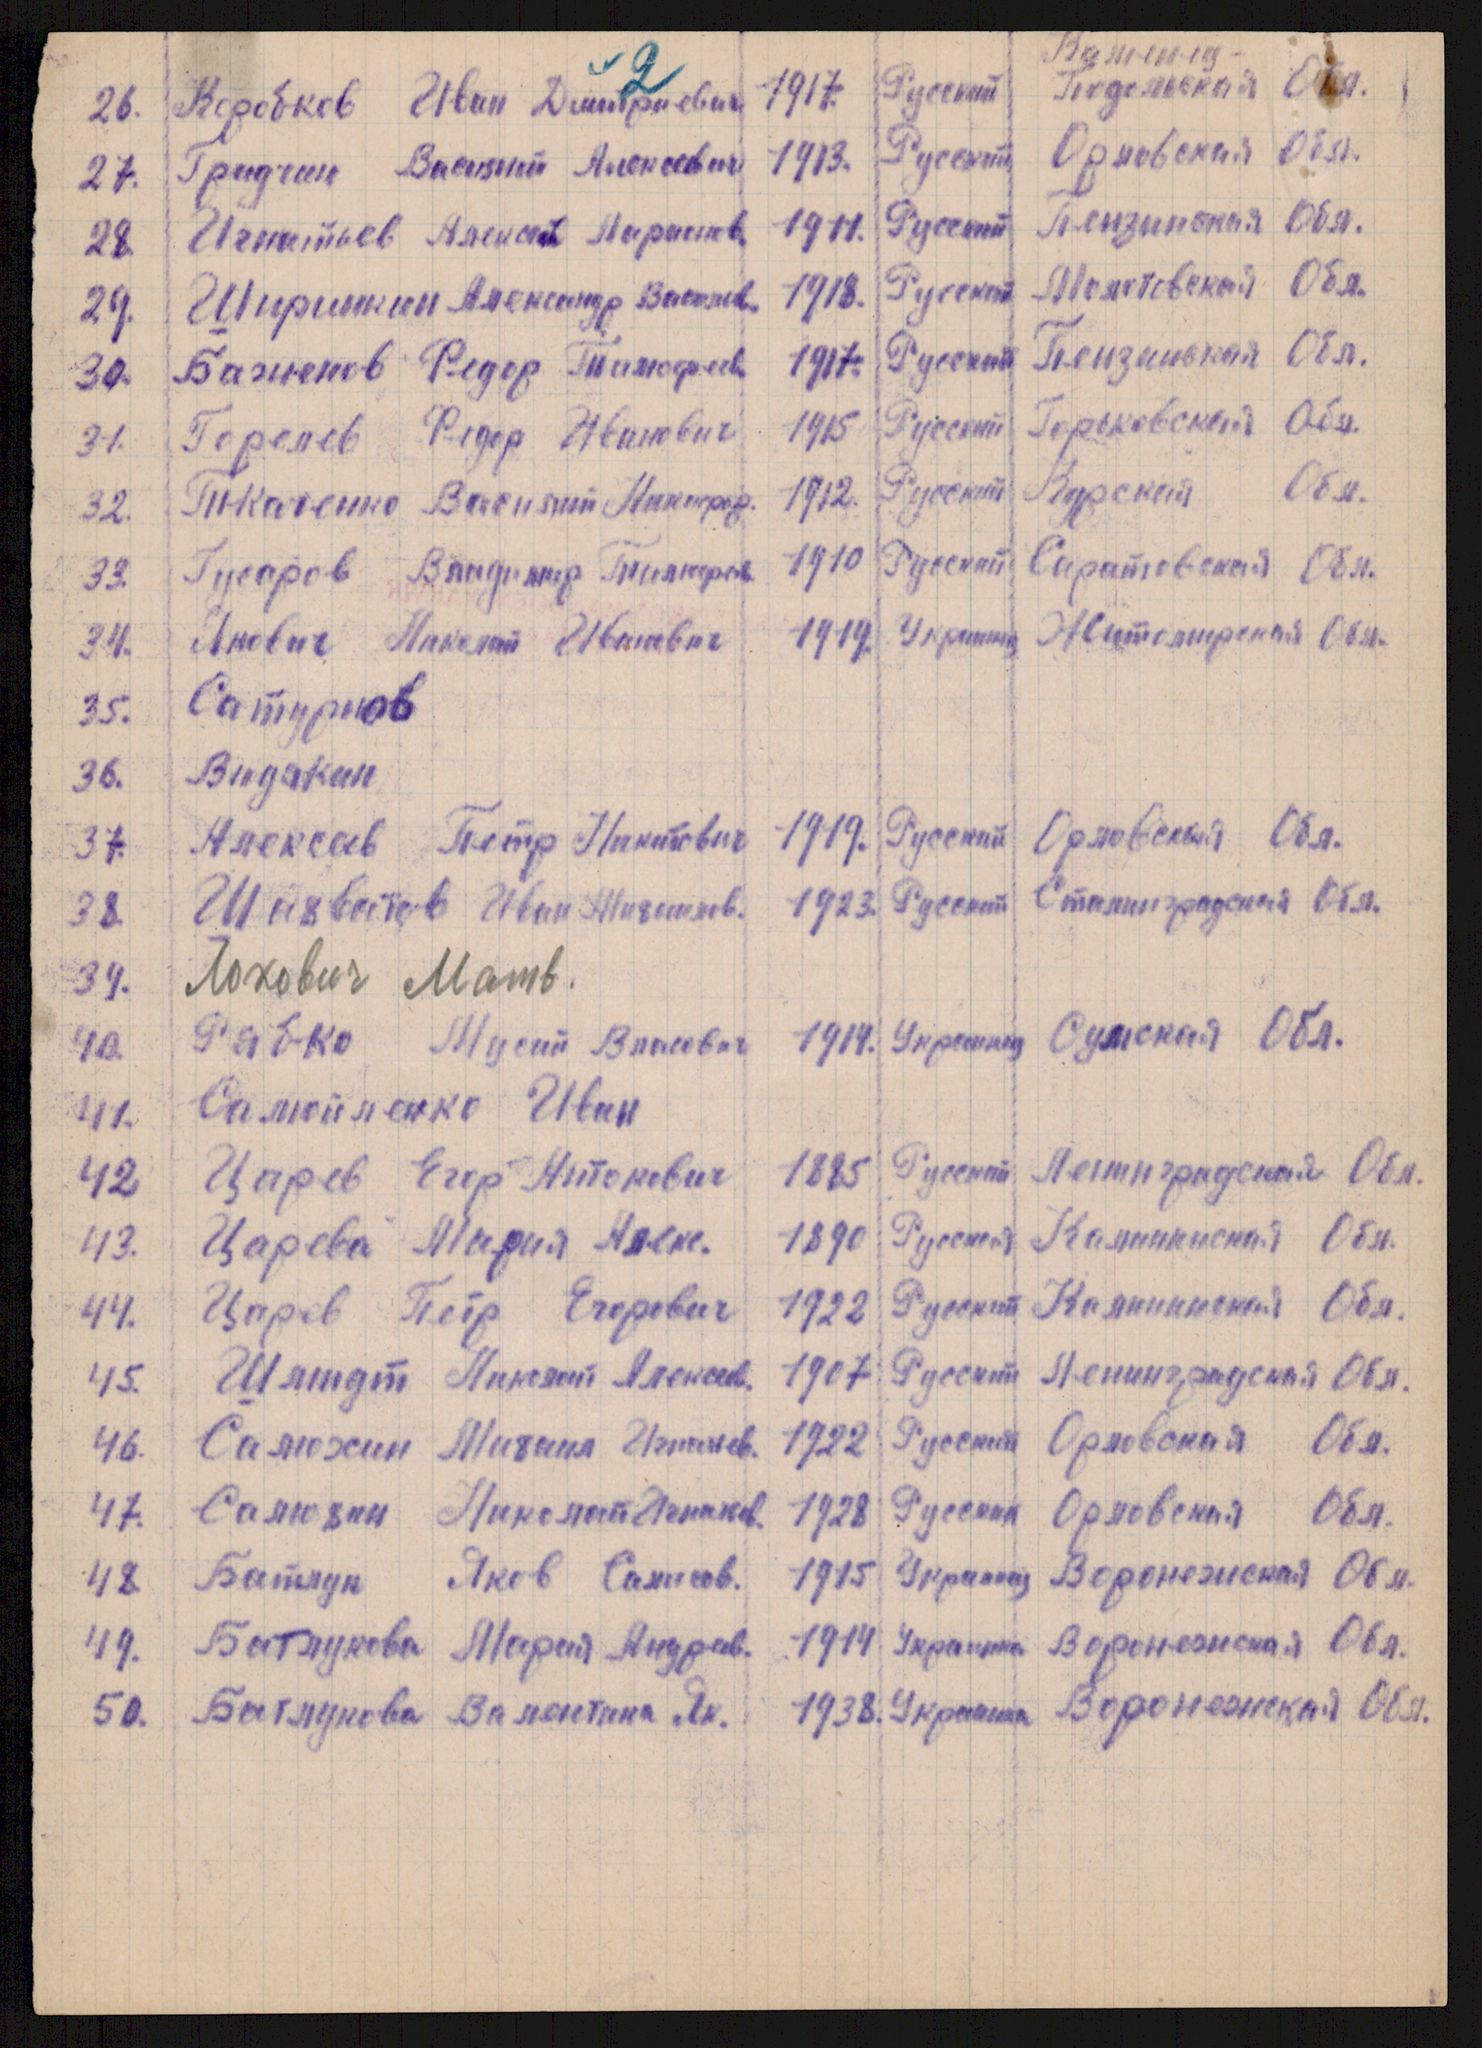 2
Каменец-
26. Коробков Иван Дмитриевич 1917. Русский Подольская Обл.
27. Гридчин Василий Алексеевич 1913. Русский Орловская Обл.
28. Игнатьев Алексей Ларионов. 1911. Русский Пензинская Обл.
29. Ширинкин Александр Васильев. 1918. Русский Молотовская Обл.
30. Баженов Федор Тимофеев. 1917. Русский Пензинская Обл.
31. Горелев Федор Иванович 1915 Русский Горьковская Обл.
32. Ткаченко Василий Никифор. 1912. Русский Курская Обл.
33. Гусаров Владимир Тимофеев. 1910 Русский Саратовская Обл.
34. Янович Николай Иванович 1919. Украинец Житомирская Обл.
35. Сатурнов
36. Видякин
37. Алексеев Петр Никитович 1919. Русский Орловская Обл.
38. Шахватов Иван Михаилов. 1923. Русский Сталинградская Обл.
39. Лохович Матв.
40. Рябко Мусий Власович 1914. Украинец Сумская Обл.
41. Самойленко Иван
42 Царев Егор Антонович 1885 Русский Ленинградская Обл.
43. Царева Мария Алек. 1890 Русская Калининская Обл.
44. Царев Петр Егорович 1922 Русский Калининская Обл.
45. Шмидт Николай Алексеев. 1907 Русский Ленинградская Обл.
46. Самохин Михаил Игнатьев. 1922 Русский Орловская Обл.
47. Самохин Николай Игнатьев. 1928 Русский Орловская Обл.
48. Батлук Яков Самисов. 1915 Украинец Воронежская Обл.
49. Батлукова Мария Андреев. 1914 Украинка Воронежская Обл.
50. Батлукова Валентина Як. 1938. Украинка Воронежская Обл.